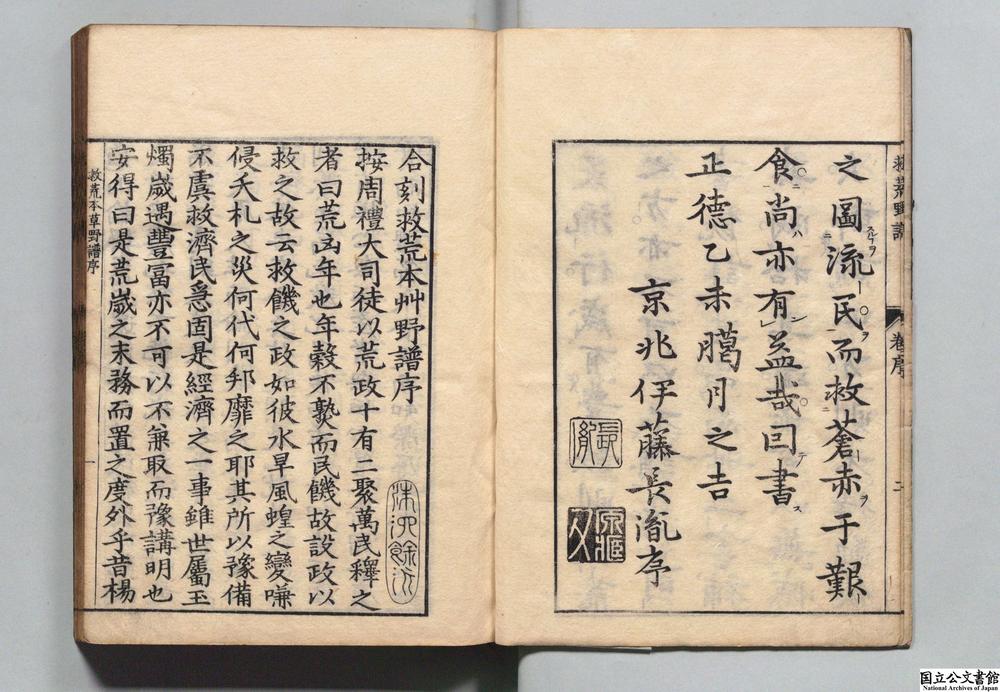 救荒野譜
卷序
二
之圖流民而救蒼赤于艱
食尚亦有益哉曰書
正德乙未臈月之吉
京兆伊藤長胤序
長胤
合刻救荒本艸野譜序
按周禮大司徒以荒政十有二聚萬民釋之
者曰荒凶年也年穀不熟而民饑故設政以
救之故云救饑之政如彼水旱風蝗之變嗛
侵夭札之災何代何邦靡之耶其所以豫備
不虞救濟民急固是經濟之一事雖世屬玉
燭歲遇豐富亦不可以不兼取而豫講明也
安得曰是荒歲之末務而置之度外乎昔楊
救荒本草野譜序
一
国立公文書館
National Archives of Japan